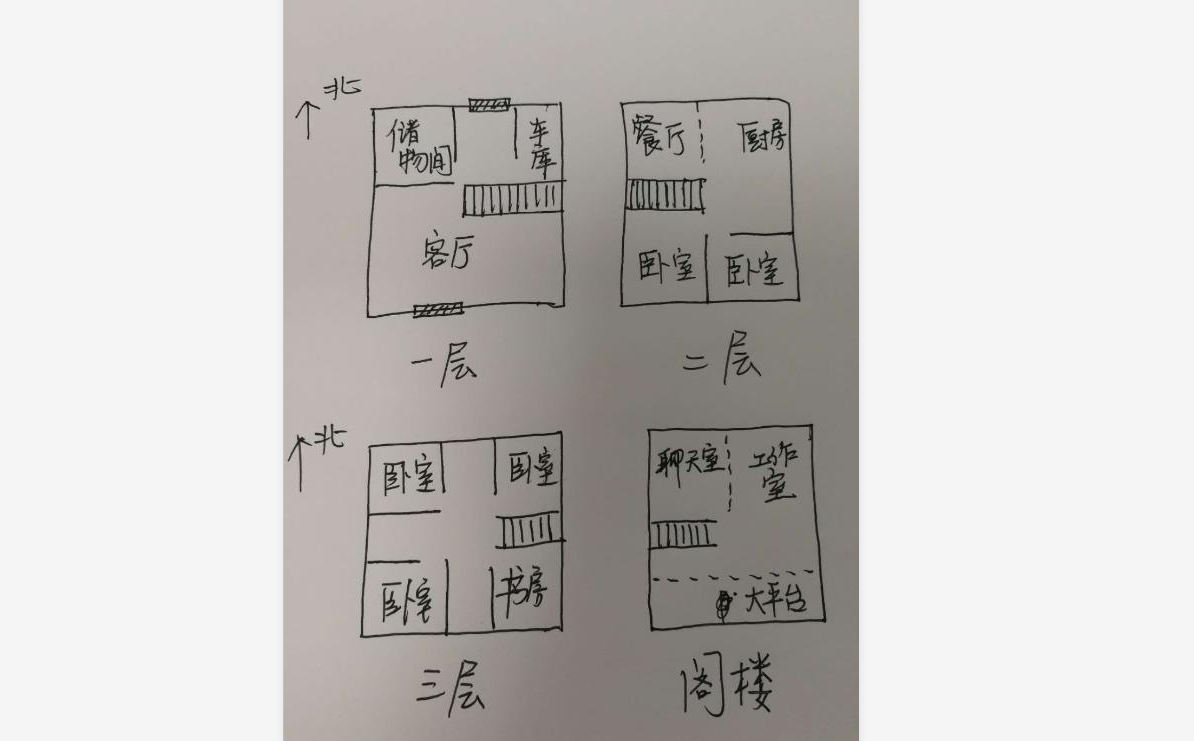 北
储
物间
车
库
客厅
一层
餐厅
厨房
卧室
卧室
二层
北
卧室
卧室
卧室
书房
三层
聊天室
工作
室
大平台
阁楼